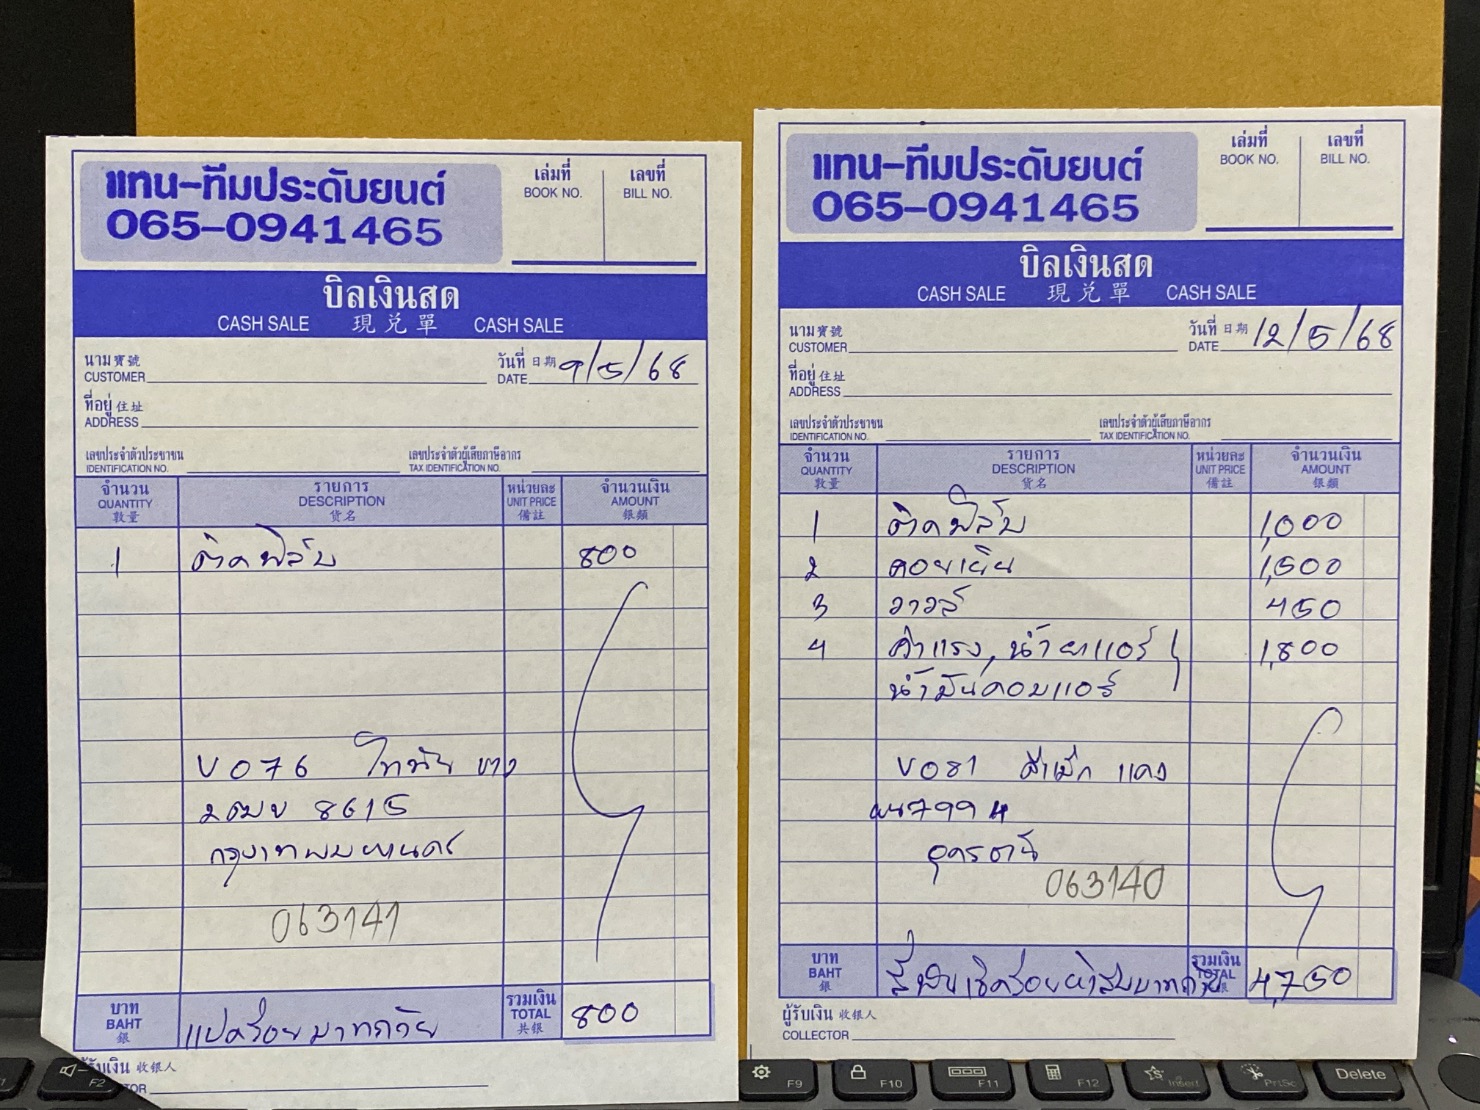 แทน-ทีมประดับยนต์
065-0941465
เล่มที่
BOOK NO.
เลขที่
BILL NO.
บิลเงินสด
CASH SALE 現兌單 CASH SALE
นาม寶號
CUSTOMER
วันที่ 日期
DATE 9/5/68
ที่อยู่ 住址
ADDRESS
เลขประจำตัวประชาชน
IDENTIFICATION NO.
เลขประจำตัวผู้เสียภาษีอากร
TAX IDENTIFICATION NO.
จำนวน
QUANTITY
數量
รายการ
DESCRIPTION
货名
หน่วยละ
UNIT PRICE
備註
จำนวนเงิน
AMOUNT
銀額
1 ติดฟิล์ม 800
V076
8615
กรุงเทพมหานคร
063141
บาท
BAHT
銀
แปดร้อยบาทถ้วย
รวมเงิน
TOTAL
共銀
800
รับเงิน 收银人
TOR
แทน-ทีมประดับยนต์
065-0941465
เล่มที่
BOOK NO.
เลขที่
BILL NO.
บิลเงินสด
CASH SALE 現兌單 CASH SALE
นาม寶號
CUSTOMER
วันที่ 日期
DATE 12/5/68
ที่อยู่ 住址
ADDRESS
เลขประจำตัวประชาชน
IDENTIFICATION NO.
เลขประจำตัวผู้เสียภาษีอากร
TAX IDENTIFICATION NO.
จำนวน
QUANTITY
數量
รายการ
DESCRIPTION
货名
หน่วยละ
UNIT PRICE
備註
จำนวนเงิน
AMOUNT
銀額
1 ติดฟิล์ม 1,000
2 คอยเย็น 1,500
3 วาวล์ 450
4 ค่าแรง, น้ำยาแอร์ 1,800
น้ำมันคอมแอร์
V081 แดง
7994
อุดรธานี
063140
บาท
BAHT
銀
สี่พันเจ็ดร้อยห้าสิบบาทถ้วน
รวมเงิน
TOTAL
4,750
ผู้รับเงิน 收银人
COLLECTOR
F2
F9
F10
F11
F12
Insert
PrtSc
Delete